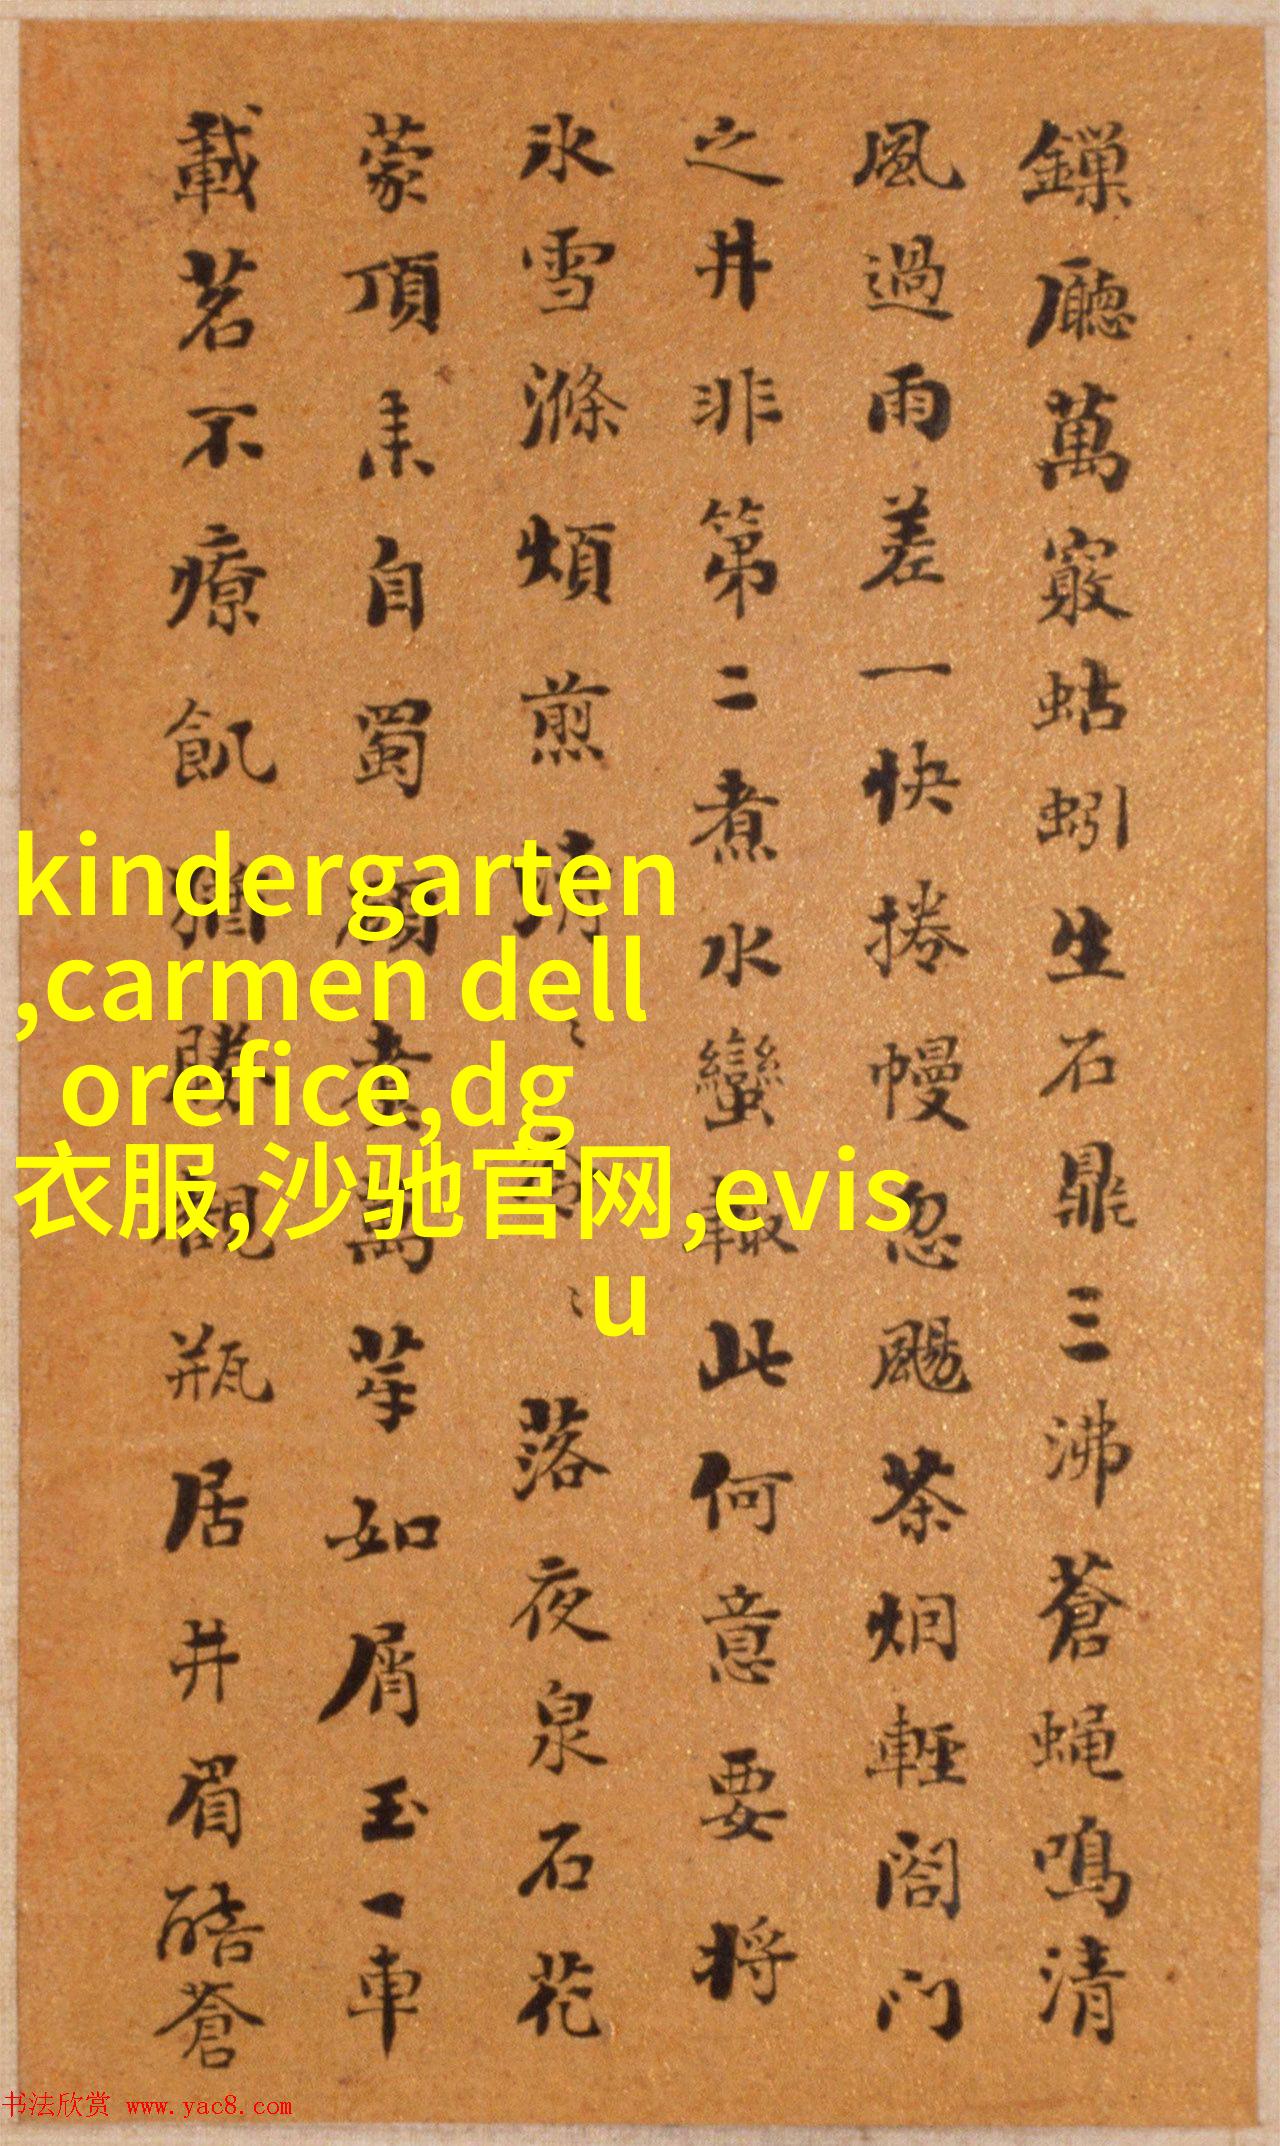 廳萬竅蛄蚓生石鼎三沸蒼蝇鳴清
風過雨差一快捲幔忽颺茶烟輕閤門
之井非第二煮水蠻輙此何意要将
氷雪滌煩煎落夜泉石花
蒙頂来自蜀萬芽如屑玉一車
載茗不療飢猶勝瓶居井眉酷蒼
kindergarten
,carmen dell
orefice,dg
衣服,沙驰官网,evis
u
书法欣赏 www.yac8.com